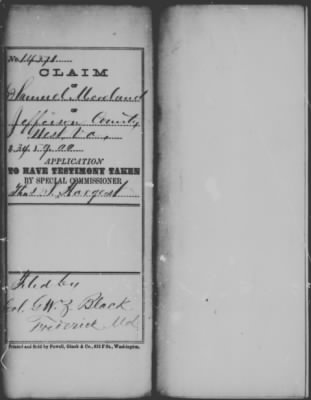 No. 14371
CLAIM
OF
Samuel Moreland
OF
Jefferson County
West Va.
APPLICATION
TO HAVE TESTIMONY TAKEN
BY SPECIAL COMMISSIONER
Filed by
Col. G W Z Black
Frederick Md
Printed and Sold by Powell, Ginck & Co., 632 F St., Washington.